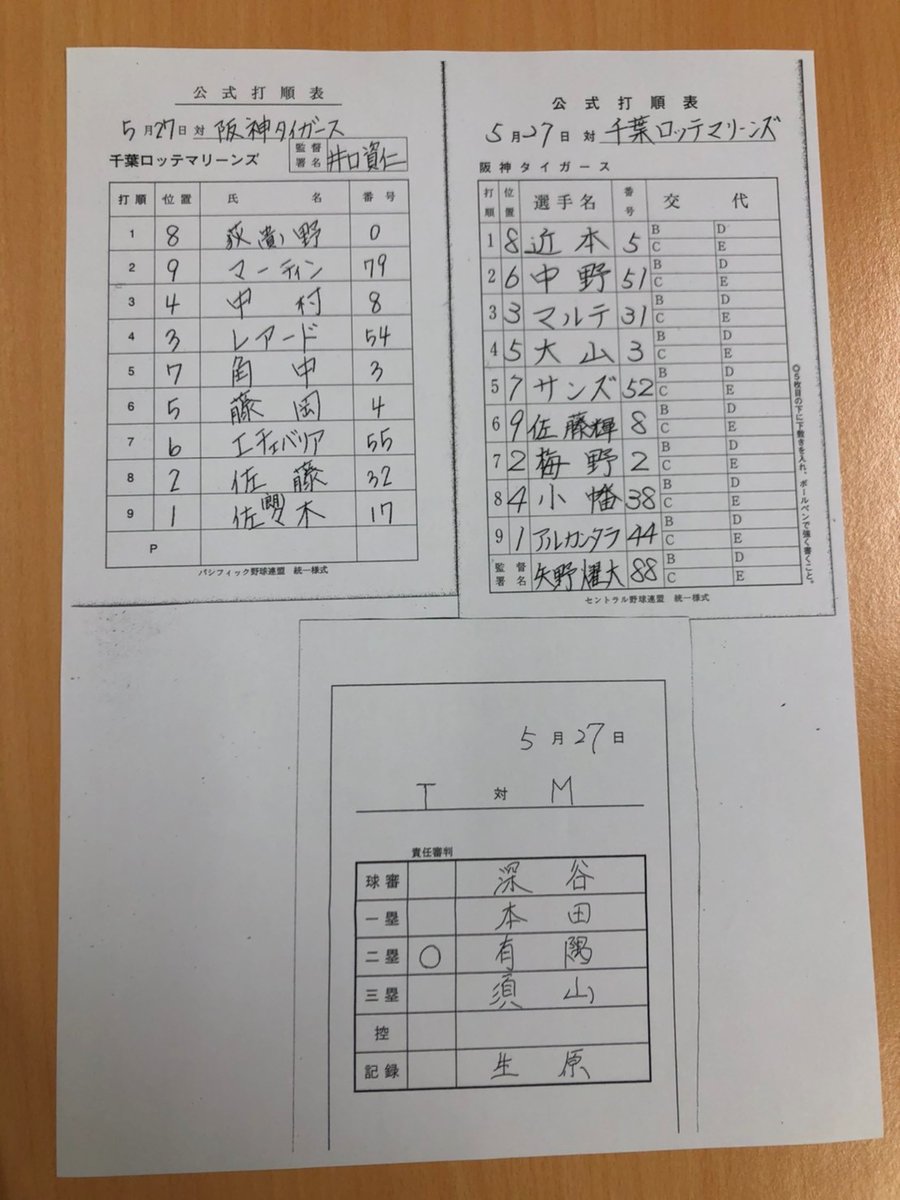 公式打順表
5月27日 対 阪神タイガース
千葉ロッテマリーンズ 監督署名 井口資仁
打順 位置 氏名 番号
1 8 荻(貴)野 0
2 9 マーティン 79
3 4 中村 8
4 3 レアード 54
5 7 角中 3
6 5 藤岡 4
7 6 エチェバリア 55
8 2 佐藤 32
9 1 佐(朗)木 17
P
パシフィック野球連盟 統一様式
公式打順表
5月27日 対 千葉ロッテマリーンズ
阪神タイガース
打順 位置 選手名 番号 交代
1 8 近本 5 B D
C E
2 6 中野 51 B D
C E
3 3 マルテ 31 B D
C E
4 5 大山 3 B D
C E
5 7 サンズ 52 B D
C E
6 9 佐藤輝 8 B D
C E
7 2 梅野 2 B D
C E
8 4 小幡 38 B D
C E
9 1 アルカンタラ 44 B D
C E
監督署名 矢野燿大 88 B D
C E
セントラル野球連盟 統一様式
◎5枚目の下に下敷きを入れ、ボールペンで強く書くこと。
5月27日
T 対 M
責任審判
球審 深谷
一塁 本田
二塁 ○ 有隅
三塁 須山
控
記録 生原